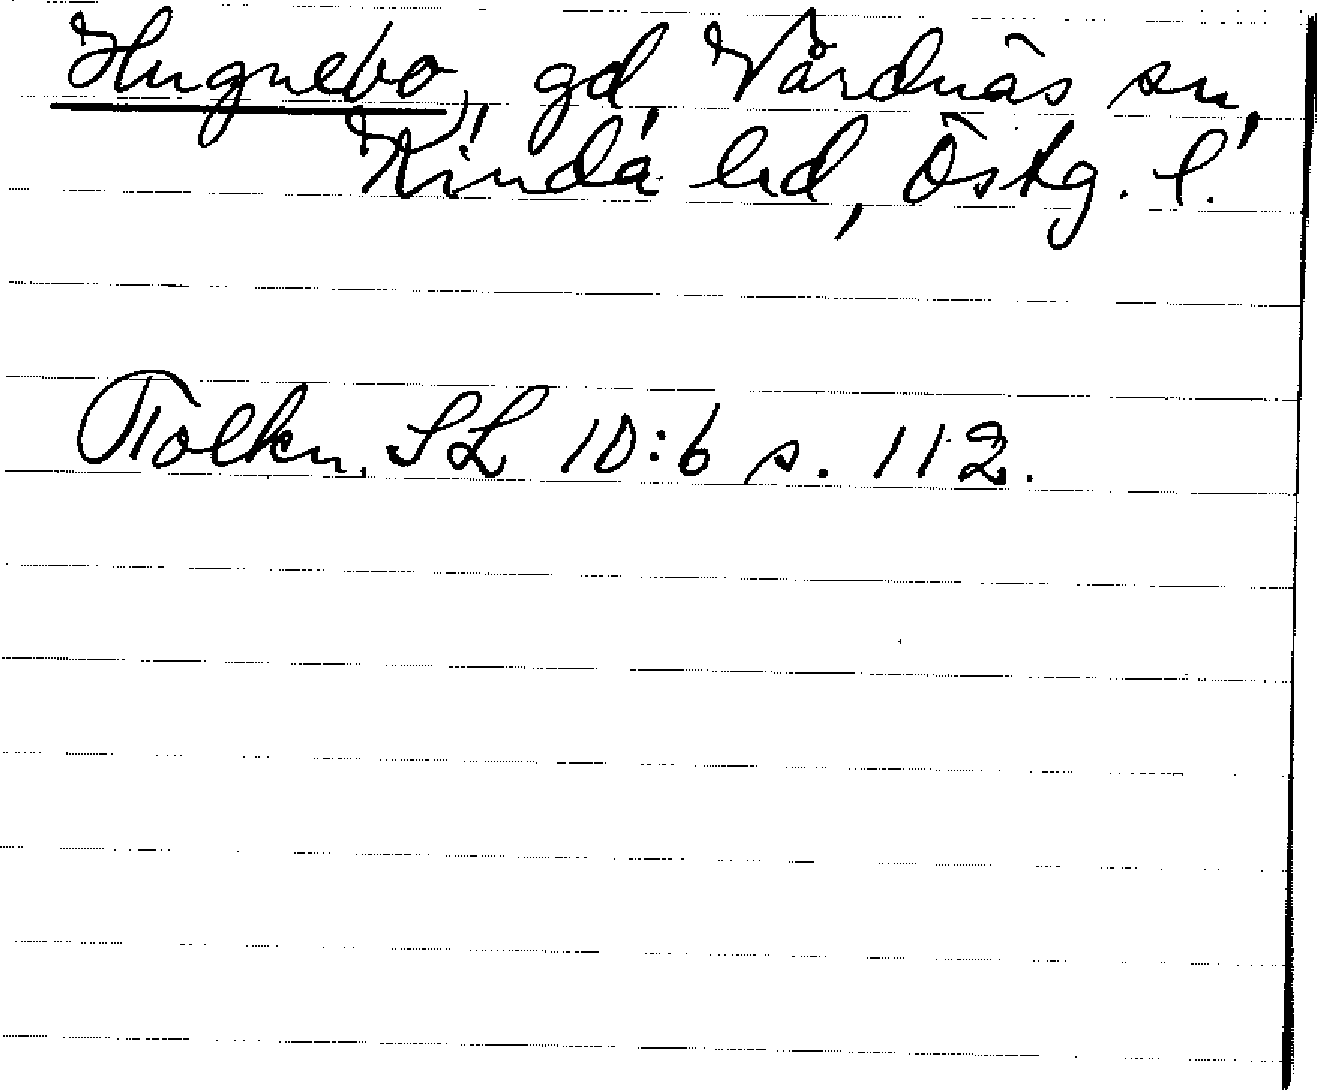 Hugnebo, gd, Vårdnäs sn,
Kinda hd, Östg. l.
Tolkn. SL 10:6 s. 112.